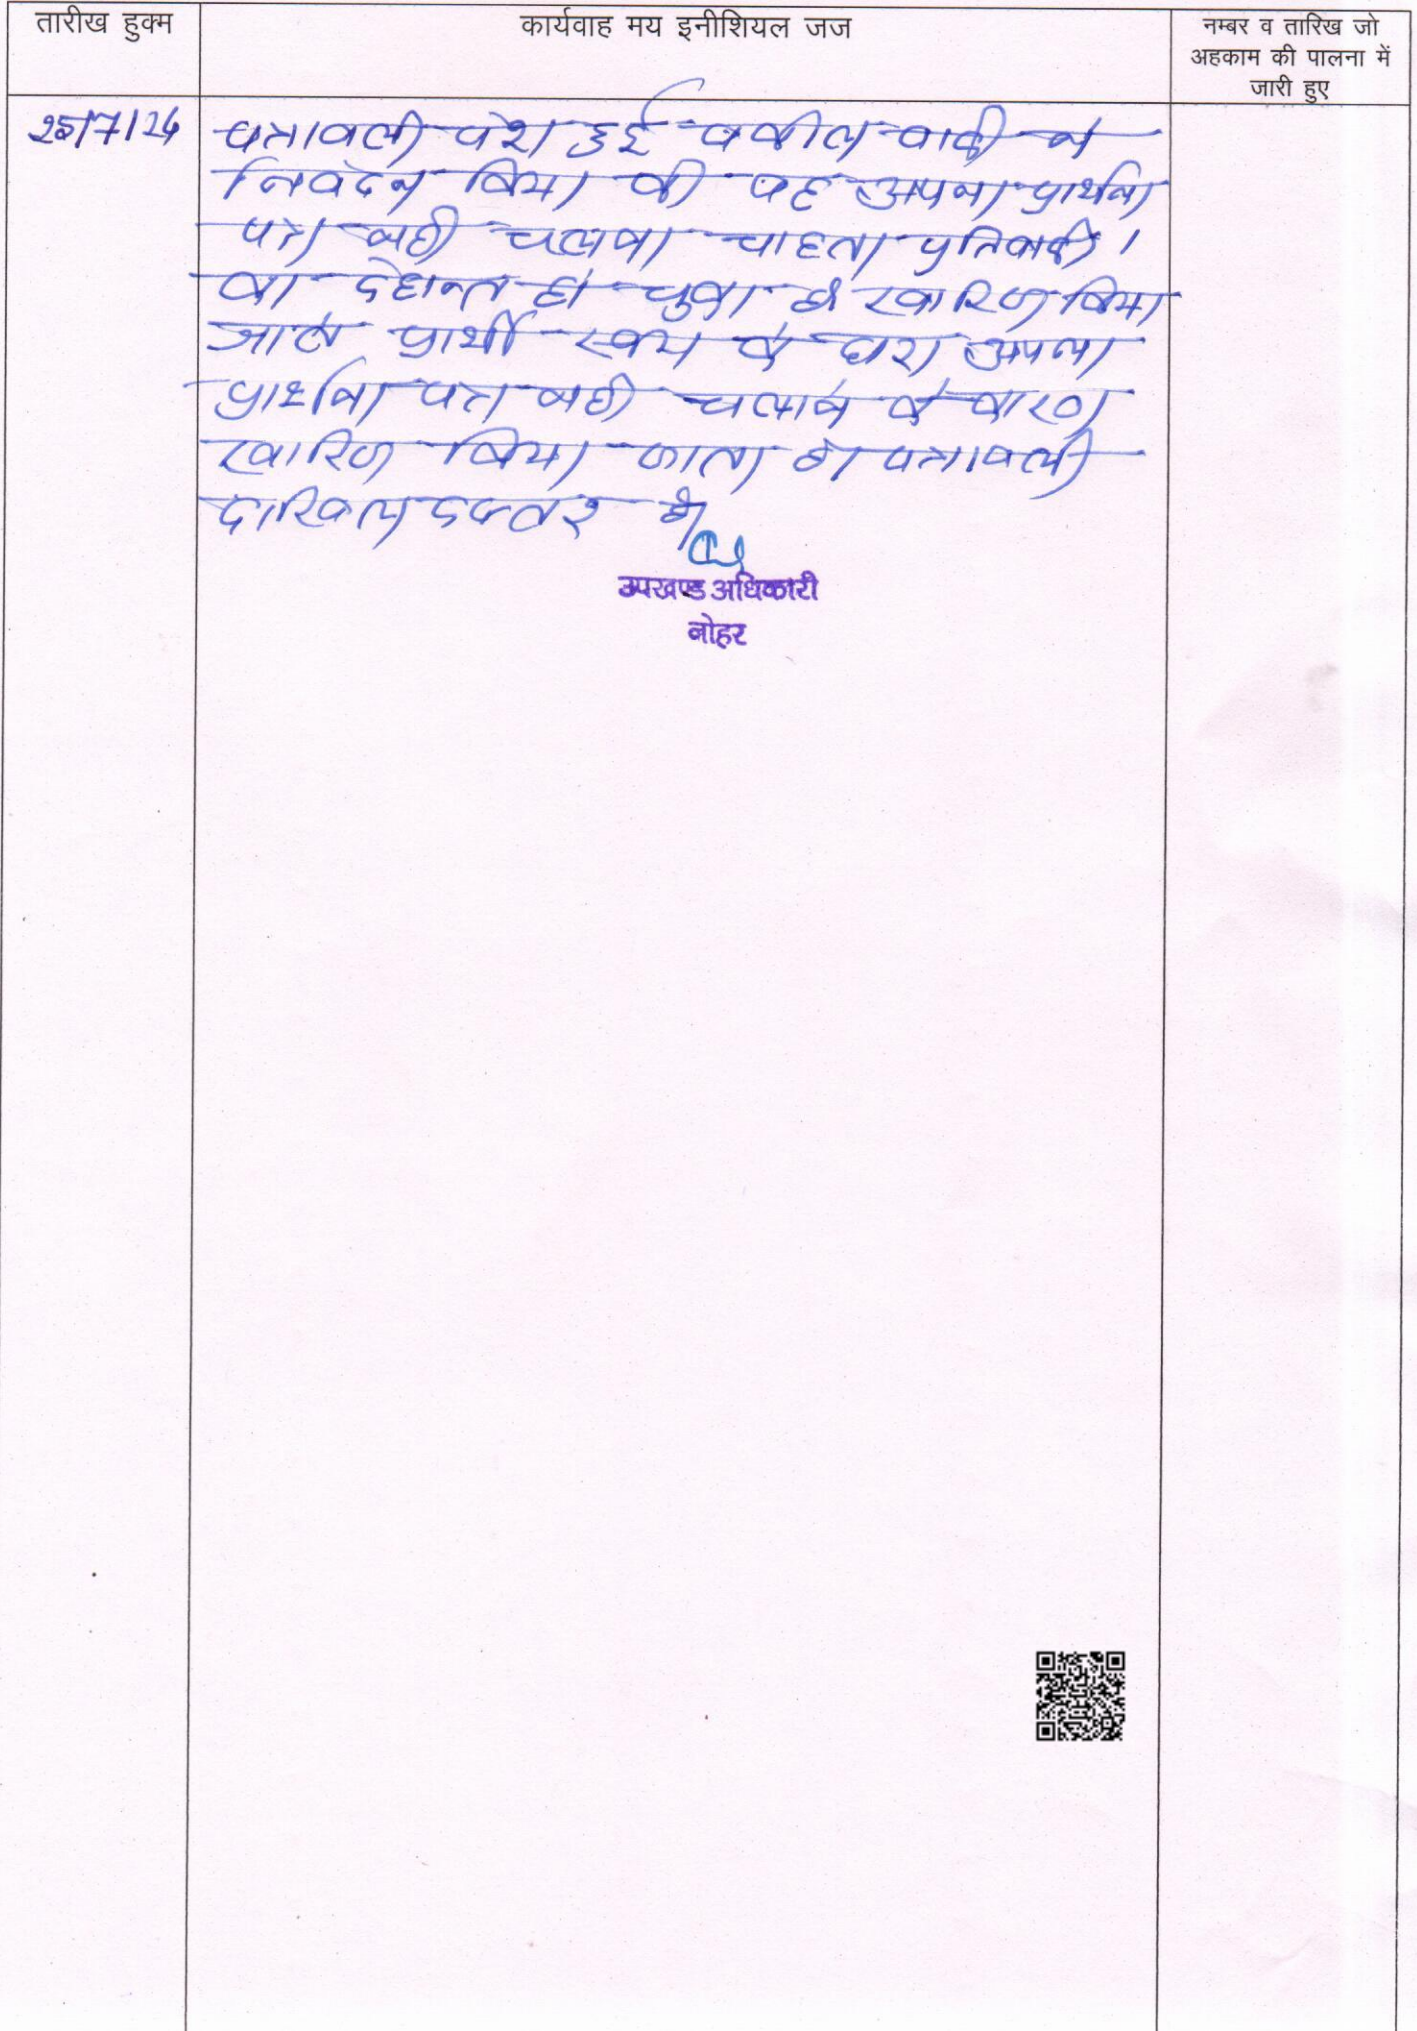 तारीख हुक्म
कार्यवाह मय इनीशियल जज
नम्बर व तारिख जो
अहकाम की पालना में
जारी हुए
पत्रावली पेश हुई वकील वादी ने
निवेदन किया की वह अपना प्रार्थना
पत्र नही चलाना चाहता प्रतिवादी ।
का देहान्त हो चुका है खारिज किया
जावे प्रार्थी स्वयं के द्वारा अपना
प्रार्थना पत्र नही चलाने के कारण
खारिज किया जाता है पत्रावली
दाखिल दफ्तर हो
उपखण्ड अधिकारी
नोहर